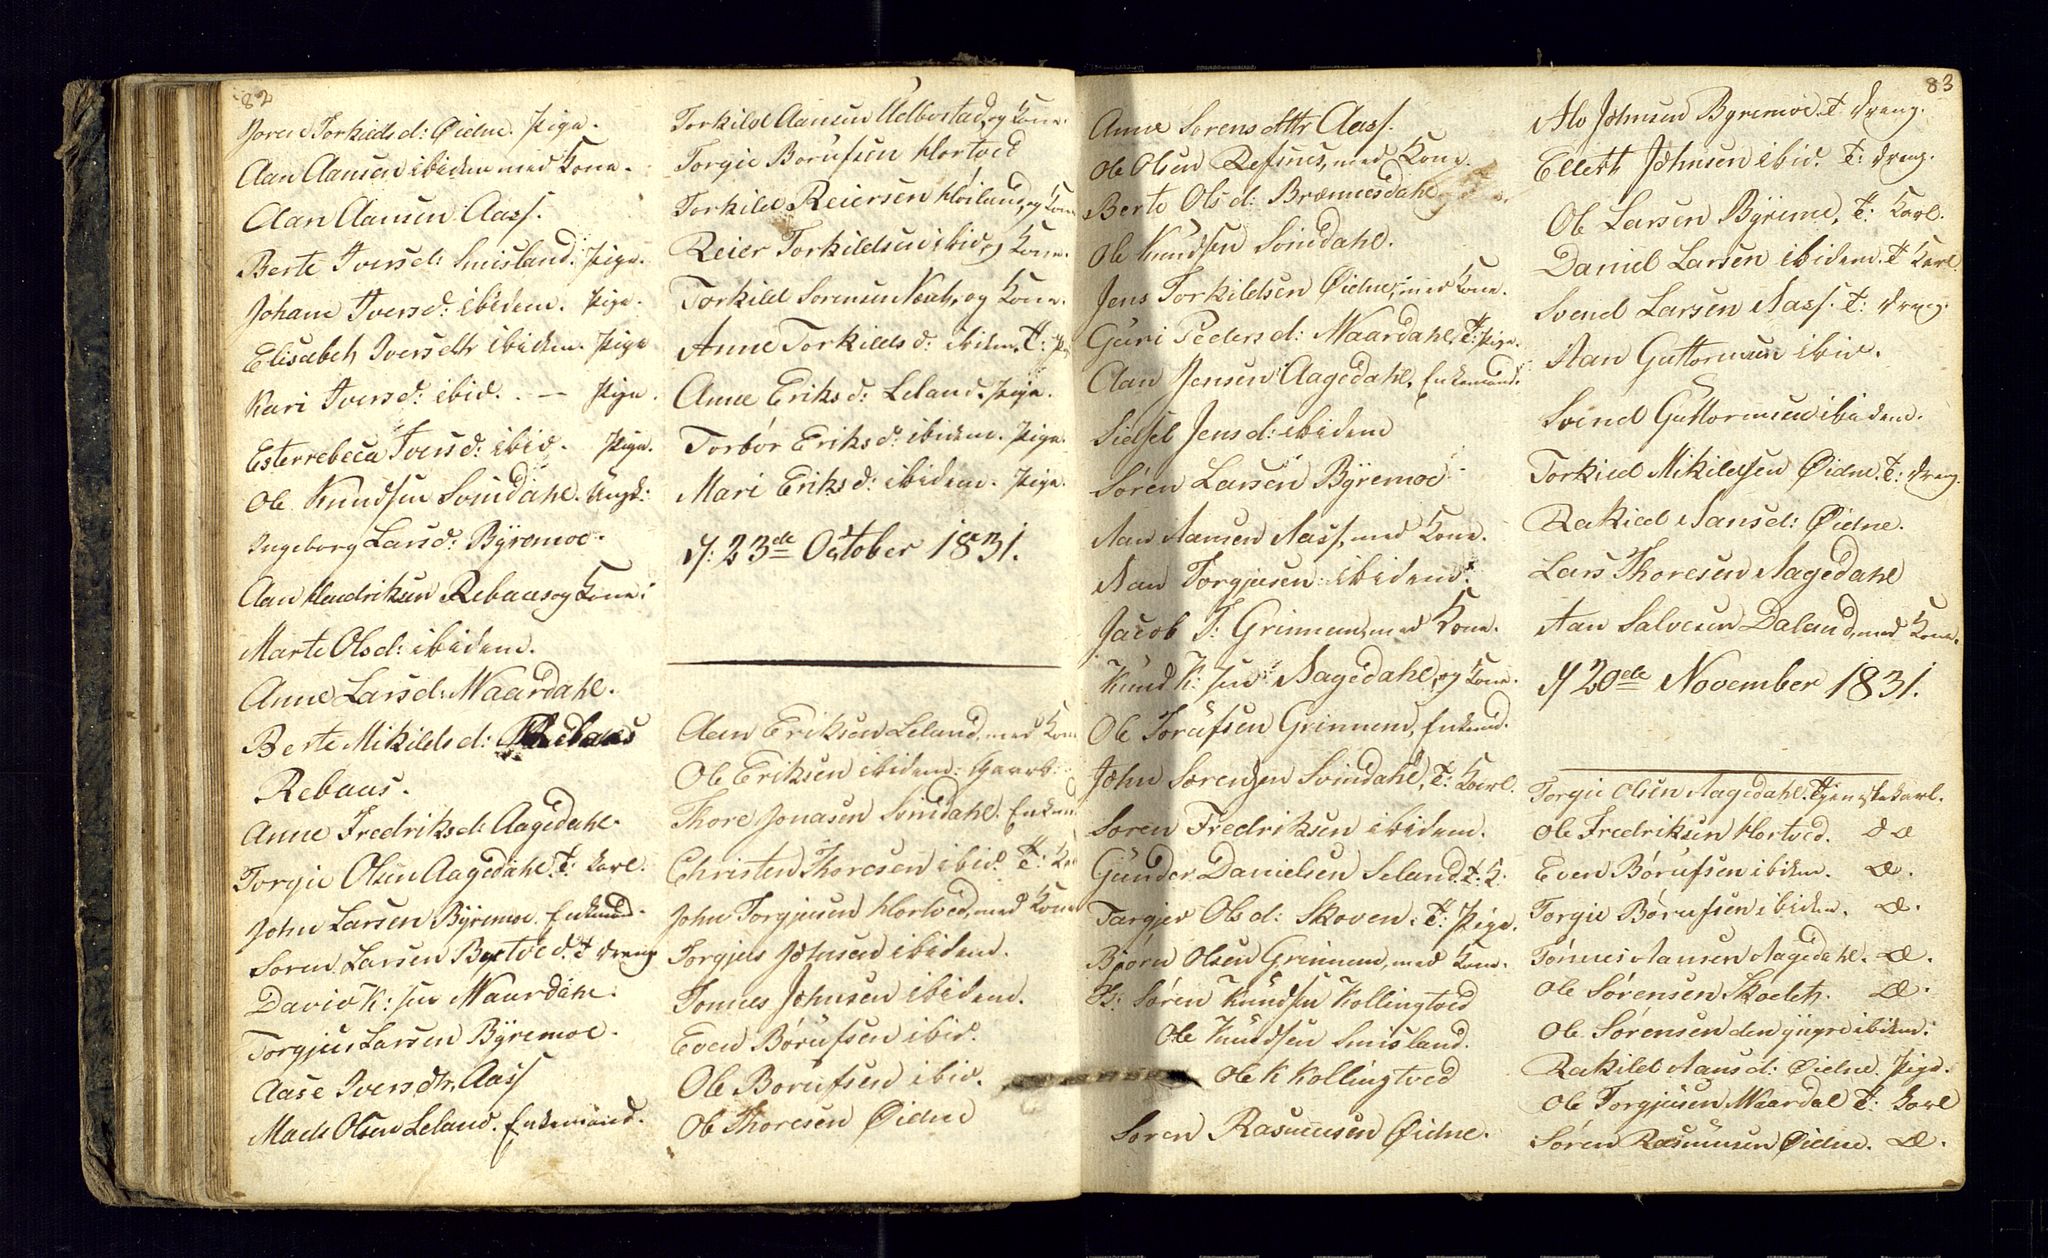 82
Joren Torkields d: Øidne. Pige.
Aan Aansen ibidem med Kone.
Aan Aansen Aass.
Berte Ivers d: Smisland. Pige.
Johane Ivers d: ibidem. Pige.
Elisabeth Ivers dtr ibidem. Pige
Kari Ivers d: ibid. - Pige.
Esterrebeca Ivers d: ibid. Pige.
Ole Knudsen Svindahl. Ungk:
Ingeborg Lars d: Byremoe.
Aan Hendriksen Rebaas og Kone:
Marte Ols d: ibidem.
Anne Lars d: Waardahl.
Berte Mikilds d:
Rebaas.
Anne Fredriks d: Aagedahl.
Torgie Olsen Aagedahl. T: Karl.
John Larsen Byremoe. Enkemd.
Soren Larsen T dreng
David K: sen Waardahl.
Torgjus Larsen Byremoe.
Aase Ivers dtr. Aass
Mads Olsen Leland. Enkemand.
Torkild Aansen og Kone.
Torgie Børufsen Hortved
Torkild Reiersen Høiland, og Kone
Reier Torkildsen ibid og Kone.
Torkild Sorensen og Kone.
Anne Torkilds d: ibidem. T: Pi
Anne Eriks d: Leland. Pige.
Torbør Eriks d: ibidem. Pige.
Mari Eriks d: ibidem. Pige.
23de October 1831.
Aan Eriksen Leland, med Kone
Ole Eriksen ibidem:
Thore Jonasen Svindahl. Enkem
Christen Thoresen ibid. T: Ka
John Torgjusen Hortved, med Kone
Torgjus Johnsen ibidem.
Tonnes Johnsen ibidem.
Even Børufsen ibid.
Ole Børufsen ibid.
Ole Thoresen Øidne
83
Anne Sorens dttr Aass.
Ole Olsen Refsnes, med Kone.
Berte Ols d: Brænnesdahl
Ole Knudsen Svindahl.
Jens Torkildsen Øidne, med Kone.
Guri Peders d: Waardahl, T: Pige.
Aan Jensen Aagedahl, Enkemand.
Sidsel Jens d: ibidem
Søren Larsen Byremoe
Aan Aansen Aass, med Kone.
Aan Torgjusen ibidem.
Jacob T: Grinnem, med Kone.
Knud K: sen Aagedahl, og Kone.
Ole Torufsen Grinnem, Enkemd.
John Sørensen Svindahl, T: Karl.
Soren Fredriksen ibidem.
Gunder Danielsen Seland. T: K:
Targjer Ols d: Skoven. T: Pige.
Bjørn Olsen Grinnem, med Kone.
Søren Knudsen Kollingtved
Ole Knudsen Smisland.
Ole K Kollingtved
Soren Rasmusen Øidne.
Johnsen Byremoe. T dreng.
Ellert Johnsen ibid. T: dreng.
Ole Larsen Byreme, T: Karl.
Daniel Larsen ibidem. T Karl.
Svend Larsen Aass. T: dreng.
Aan Guttormsen ibid.
Svend Guttormsen ibidem.
Torkield Mikildsen Øidne. T: dreng.
Rakield Aans d: Øidne.
Lars Thoresen Aagedahl
Aan Salvesen Daland, med Kone.
20de November 1831.
Torgie Olsen Aagedahl. Tjenistekarl.
Ole Fredriksen Hortved. do
Even Børufsen ibidem. do.
Torgie Børufsen ibidem. do.
Tønnes Aansen Aagedahl. do.
Ole Sørensen Skoeth. do.
Ole Sørensen den yngre ibidem.
Rakild Aans d: Øidne. Pige.
Ole Torgjusen Waardal T: Karl
Søren Rasmusen Øidne. do.